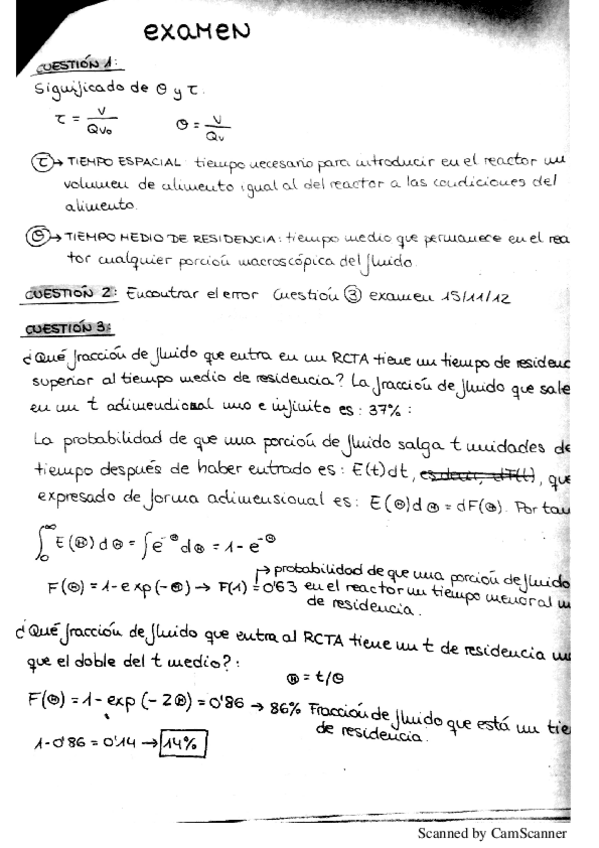 EXAMEN
CUESTIÓN 1:
Significado de Θ y τ.
τ = V/Qvo    Θ = V/Qv
τ → TIEMPO ESPACIAL: tiempo necesario para introducir en el reactor un
volumen de alimento igual al del reactor a las condiciones del
alimento.
Θ → TIEMPO MEDIO DE RESIDENCIA: tiempo medio que permanece en el reac
tor cualquier porción macroscópica del fluido.
CUESTIÓN 2: Encontrar el error Cuestión ③ examen 15/11/12
CUESTIÓN 3:
¿Qué fracción de fluido que entra en un RCTA tiene un tiempo de residenc
superior al tiempo medio de residencia? La fracción de fluido que sale
en un t adimendional uno e infinito es: 37%:
La probabilidad de que una porción de fluido salga t unidades de
tiempo después de haber entrado es: E(t)dt, es decir, dF(t), que
expresado de forma adimensional es: E(Θ)dΘ = dF(Θ). Por tan
∫₀^∞ E(Θ)dΘ = ∫e^-Θ dΘ = 1-e^-Θ
F(Θ) = 1-exp(-Θ) → F(1) = 0'63 → probabilidad de que una porción de fluido
en el reactor un tiempo menor al
de residencia.
¿Qué fracción de fluido que entra al RCTA tiene un t de residencia
que el doble del t medio?:
Θ = t/Θ
F(Θ) = 1-exp(-2Θ) = 0'86 → 86% Fracción de fluido que está un tie
de residencia.
1-0'86 = 0'14 → 14%
Scanned by CamScanner